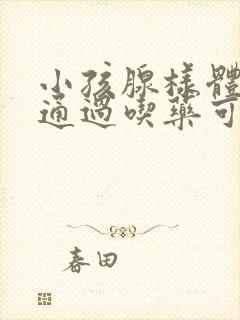 小孩腺樣體
通過喫藥可
春田